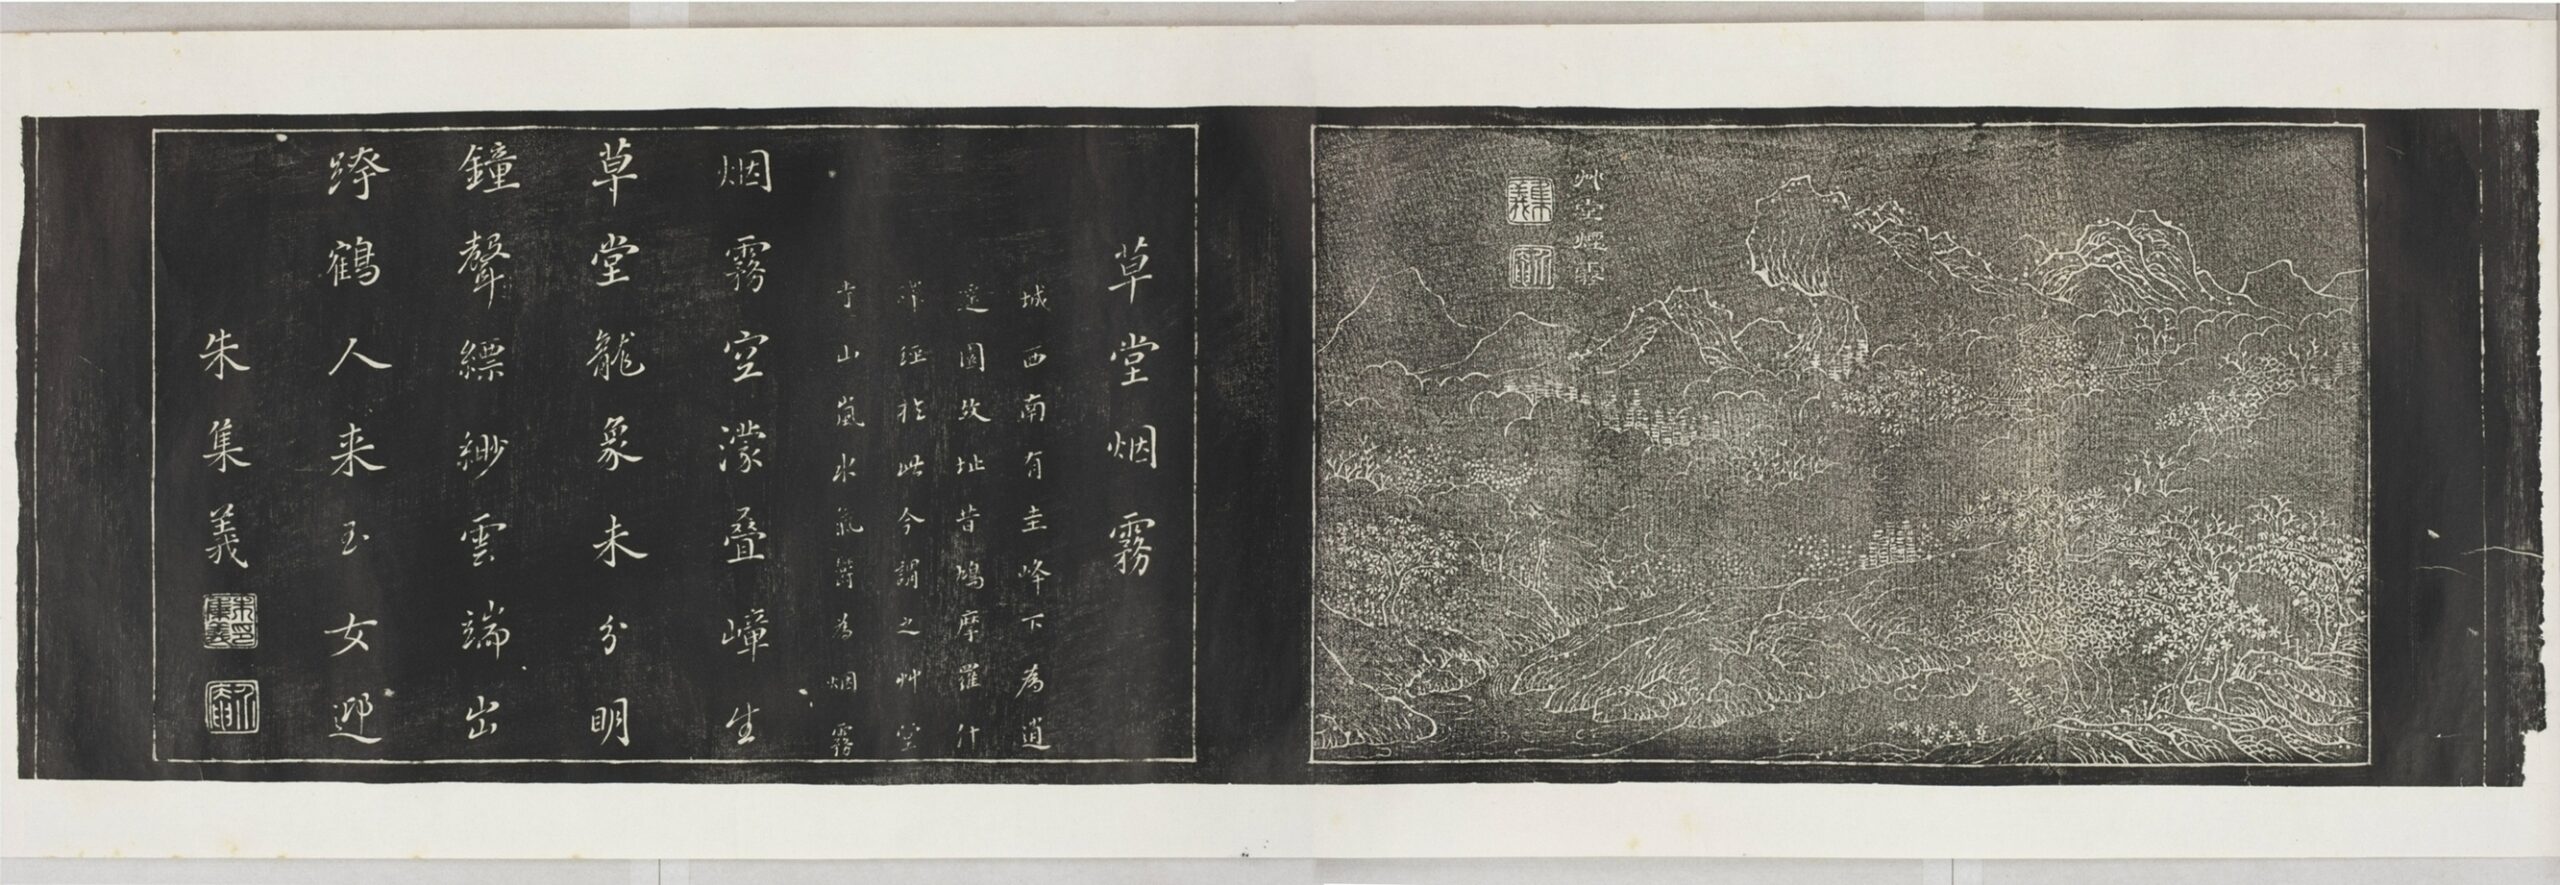 艸堂煙霧
集義
草堂烟霧
城西南有圭峰下為逍
遙園故址昔鳩摩羅什
譯經於此今謂之艸堂
寺山嵐水氣鬱為烟霧
烟霧空濛疊嶂生
草堂龍象未分明
鐘聲縹緲雲端出
跨鶴人来玉女迎
朱集義
朱印集義